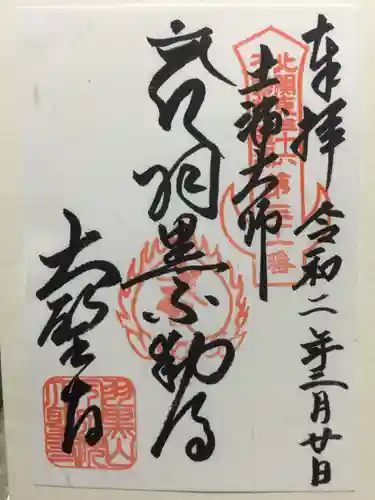 奉拝 令和二年三月廿日
北関東三十六
第三十一番
土浦大師
羽黒不動尊
大聖寺